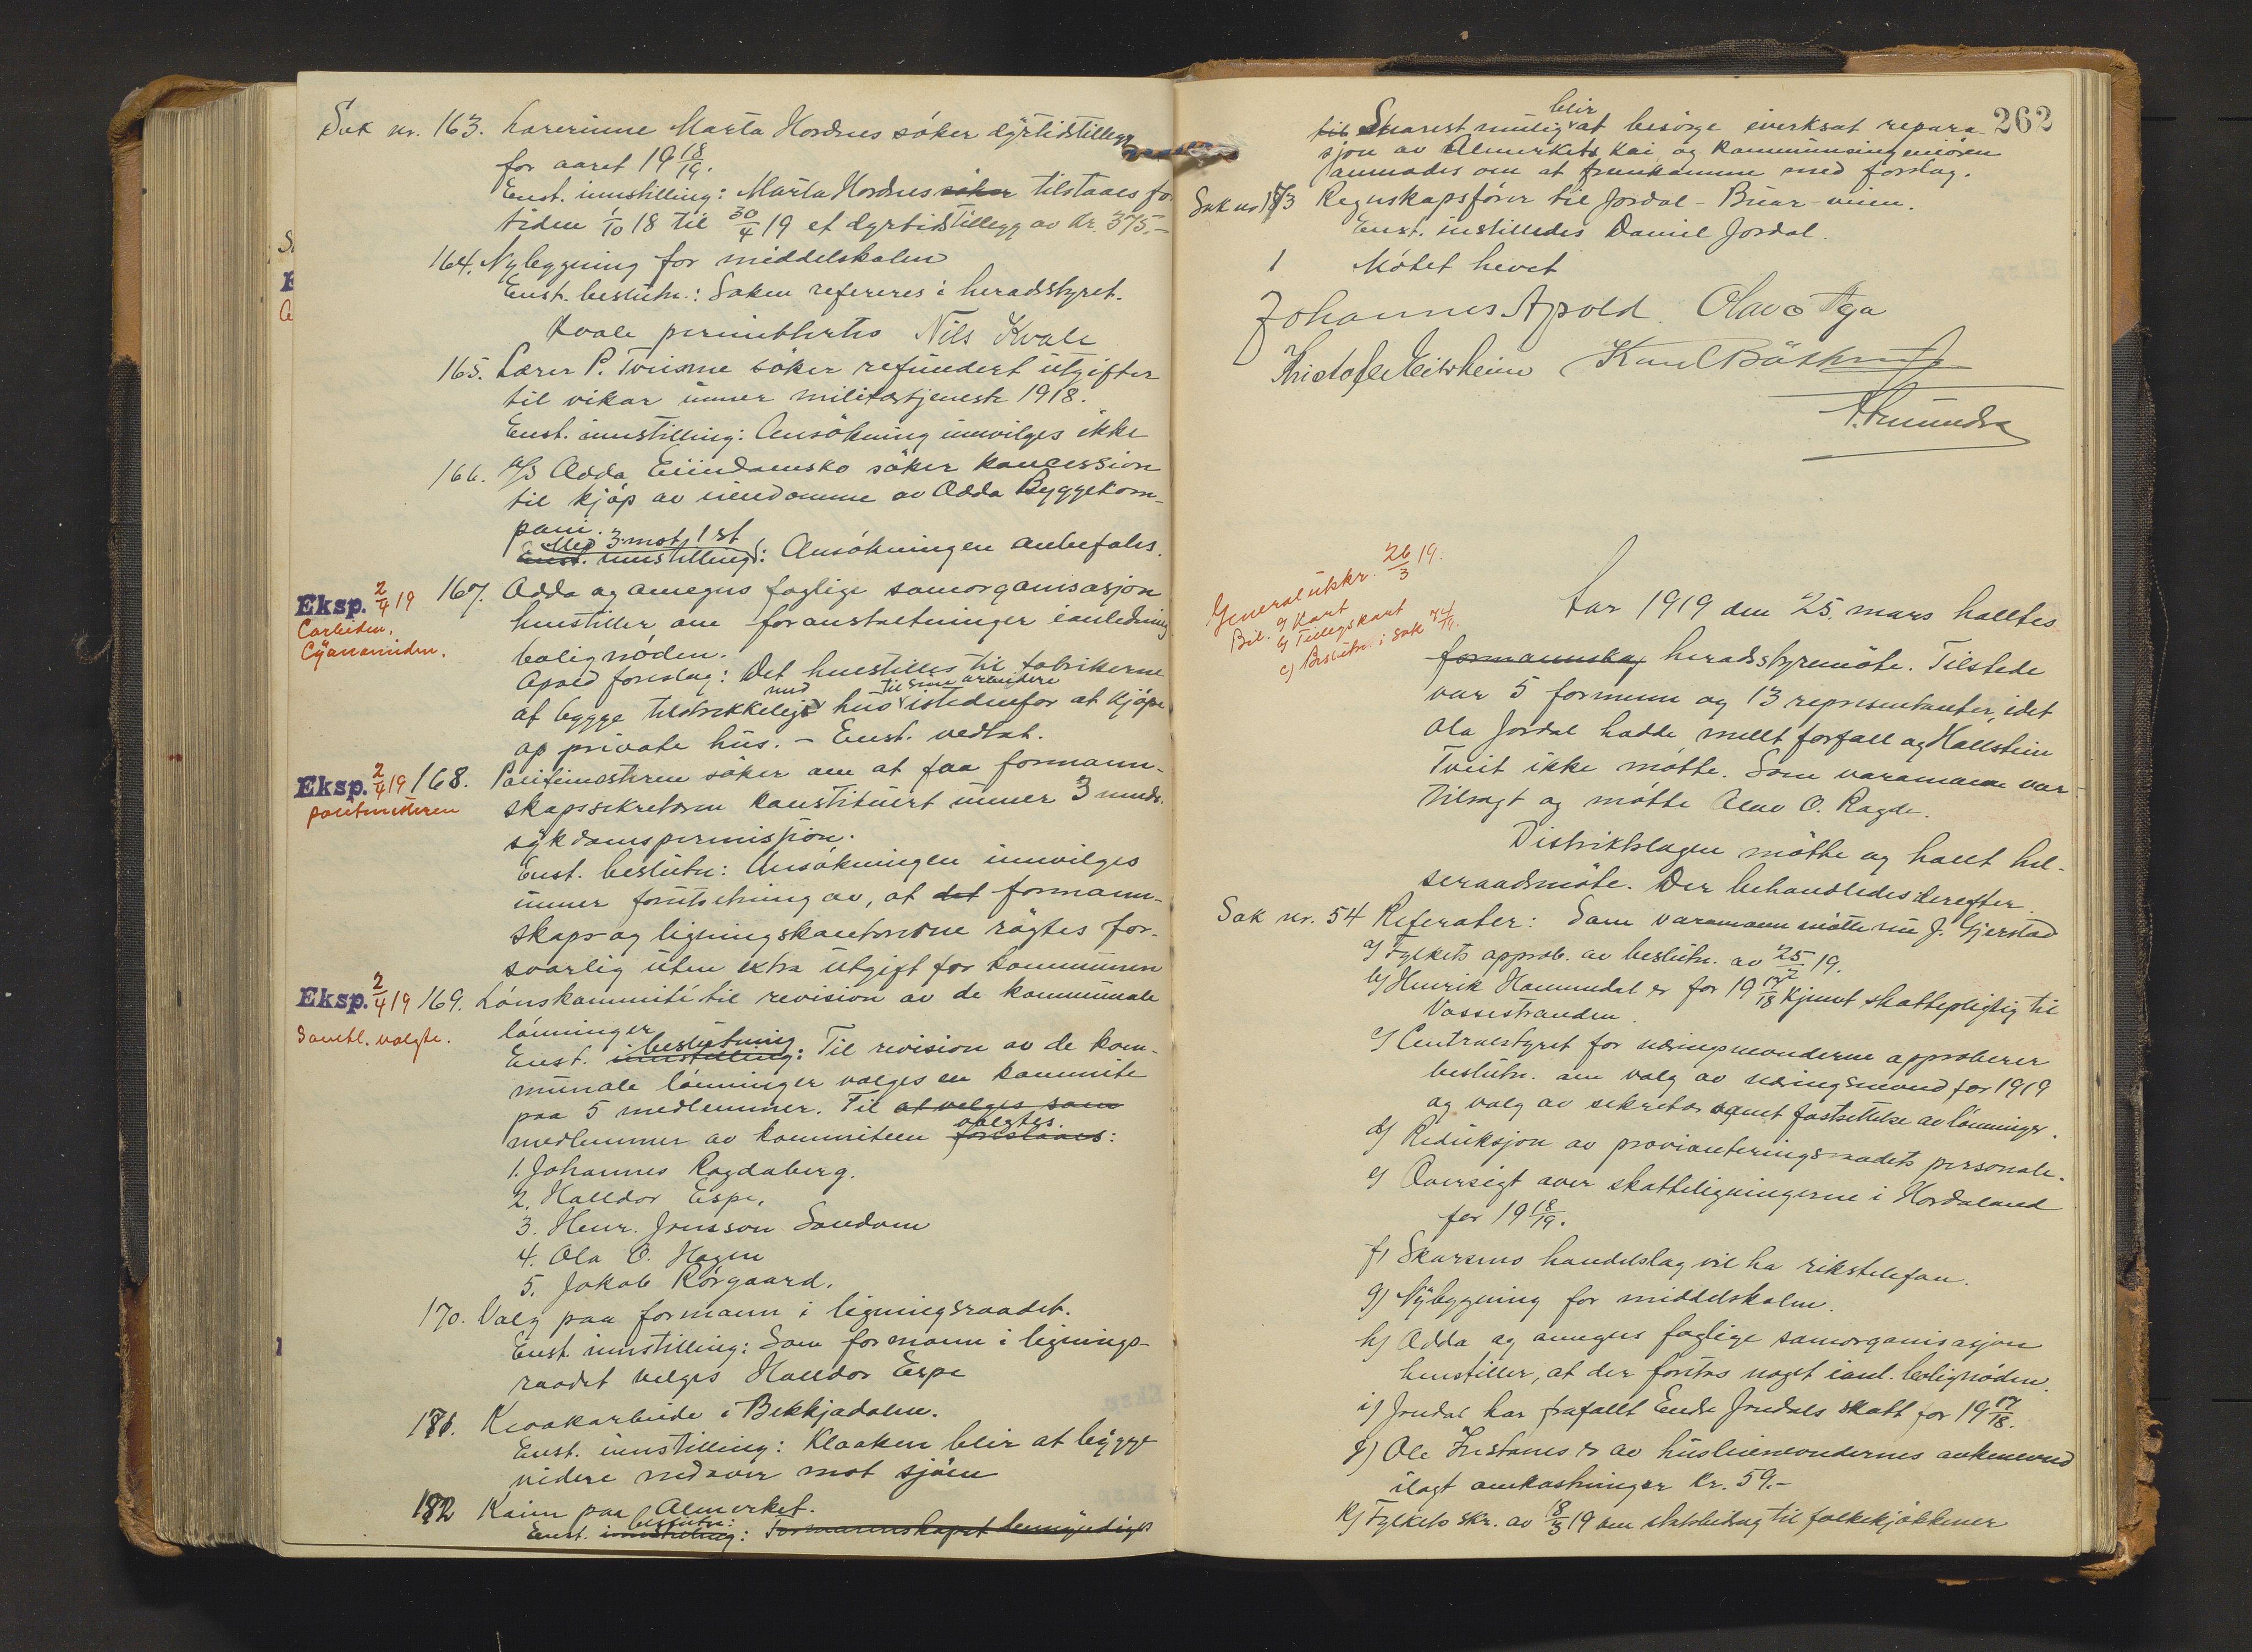 Sak nr. 163. Lærerinne Marta Hordnes søker dyrtidstillegg
for aaret 19 18/19.
Enst. innstilling: Marta Hordnes søker tilstaaes fo
tiden 1/10 18 til 30/4 19 et dyrtidstillegg av kr. 375.-
164. Nybygning for middelskolen
Enst. beslutn.: Saken refereres i heradsstyret.
Kvale permitertes Nils Kvale
165. Lærer P. Tveisme søker refundert utgifter
til vikar unner militærtjeneste 1918.
Enst. innstilling: Ansøkning innvilges ikke
166. A/S Odda Eiendomsko søker koncession
til kjøp av eiendomme av Odda Byggekom-
pani.
Med 3 mot 1 st
Enst. innstilling: Ansøkningen anbefales.
Eksp. 2/4 19
Carbiden.
Cyanamiden.
167. Odda og omegns faglige samorganisasjon
henstiller om foranstaltninger ianledning
bolignøden.
Apold foreslog: Det henstilles til fabrikerne
med til sine arbeidere
at bygge tilstrekkelig hus istedenfor at kjøpe
op private hus. - Enst. vedtat.
Eksp. 2/4 19
politimesteren
168. Politimesteren søker om at faa formann-
skapssekretæren konstituert unner 3 mnds.
sykdomspermisjion.
Enst. beslutn: Ansøkningen innvilges
unner forutsetning av, at det formann-
skaps- og ligningskontorene røgtes for-
svarlig uten extra utgift for kommunen
Eksp. 2/4 19
Samtl. valgte.
169. Lønskommité til revision av de kommunale
lønninger
beslutning
Enst. innstilling: Til revision av de kom-
munale lønninger vælges en kommite
paa 5 medlemmer. Til at velges som
valgtes.
medlemmer av kommiteen foreslaaes:
1. Johannes Ragdaberg.
2. Halldor Espe.
3. Henr. Jonsson Sandven
4. Ola O. Hagen
5. Jakob Rørgaard.
170. Valg paa formann i ligningsraadet.
Enst. innstilling: Som formann i lignings-
raadet velges Halldor Espe
171. Kloakarbeide i Bekkjadalen.
Enst. innstilling: Kloaken blir at bygge
videre nedover mot sjøen
172 Kaien paa Almerket.
beslutn:
Enst. innstilling: Formannskapet bemyndiges
262
blir
til Snarest mulig at besørge iverksat repara
sjon av Almerkets kai og kommuneingeniøren
anmodes om at fremkomme med forslag.
Sak nr 173 Regnskapsfører til Jordal - Buar - veien.
Enst. instilledes Daniel Jordal.
1 Møtet hevet
Johannes Apold. Olav Aga
Kristofer Eitrheim
Generalutskr. 26/3 19.
Bil. a) Kart
b) Tilleggskart
c) Beslutn. i sak
Aar 1919 den 25. mars holltes
formannskap heradsstyremøte. Tilstede
var 5 formenn og 13 representanter, idet
Ola Jordal hadde mellt forfall og Hallstein
Tveit ikke møtte. Som varamann var
tilsagt og møtte Olav O. Ragde.
Distriktslægen møtte og hollt hel-
seraadsmøte. Der behandledes derefter.
Sak nr. 54 Referater: Som varamann møtte nu J. Gjerstad
a) Fylkets approb. av beslutn. av 25/2 19.
b) Henrik Hammedal er for 19 17/18 kjennt skattepligtig til
Vossestranden.
c) Centralstyret for næringsnevnderne approberer
beslutn. om valg av næringsnevnd for 1919
og valg av sekretær samt fastsettelse av lønninger.
d) Reduksjon av provianteringsraadets personale.
e) Oversigt over skatteligningerne i Hordaland
for 19 18/19.
f) Skarsmo handelslag vil ha rikstelefon.
g) Nybygning for middelskolen.
h) Odda og omegns faglige samorganisasjon
henstiller, at der foretas noget ianl. bolignøden.
i) Jondal har frafallt Endre Jondals skatt for 19 17/18.
j) Ole Tristanes er av husleienevndernes ankenevnd
ilagt omkostninger kr. 59.-
k) Fylkets skr. av 18/3 19 om statsbidrag til folkekjøkkener